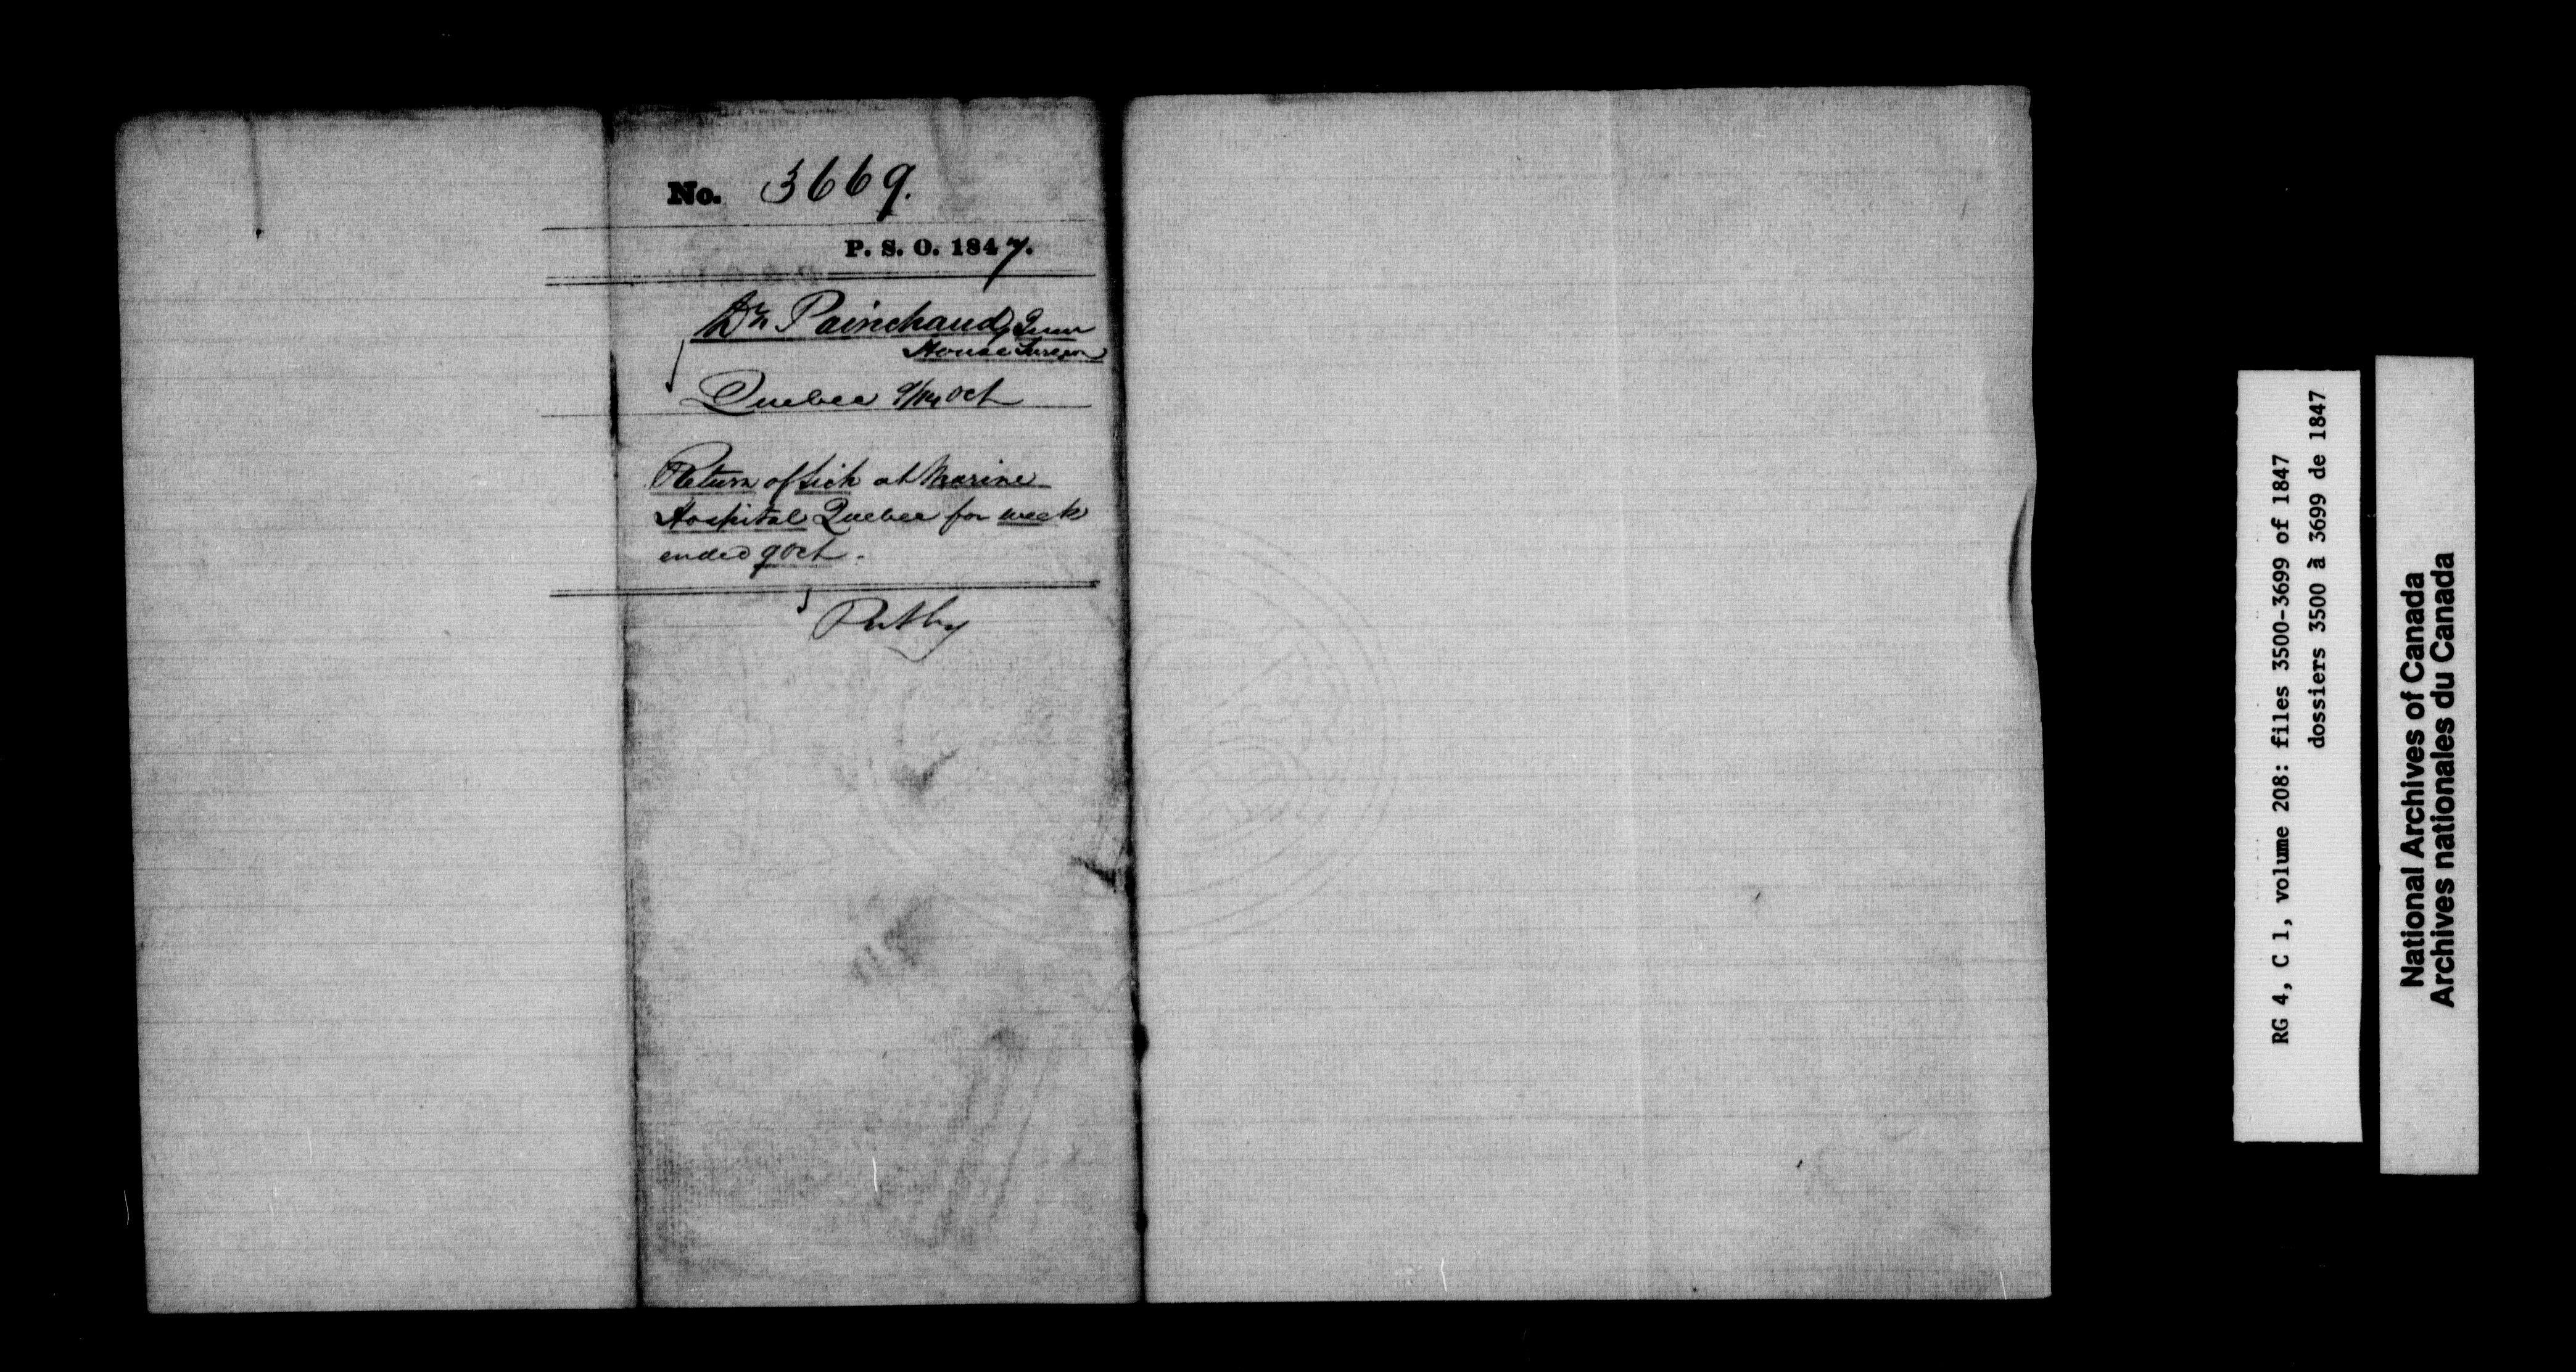 No. 3669.
P. S. O. 1847.
Dr Painchaud, Junr
House Surgeon
Quebec 9/14 Oct
Return of Sick at Marine
Hospital Quebec for week
ended 9 Oct.
RG 4, C 1, volume 208: files 3500-3699 of 1847
dossiers 3500 à 3699 de 1847
National Archives of Canada
Archives nationales du Canada